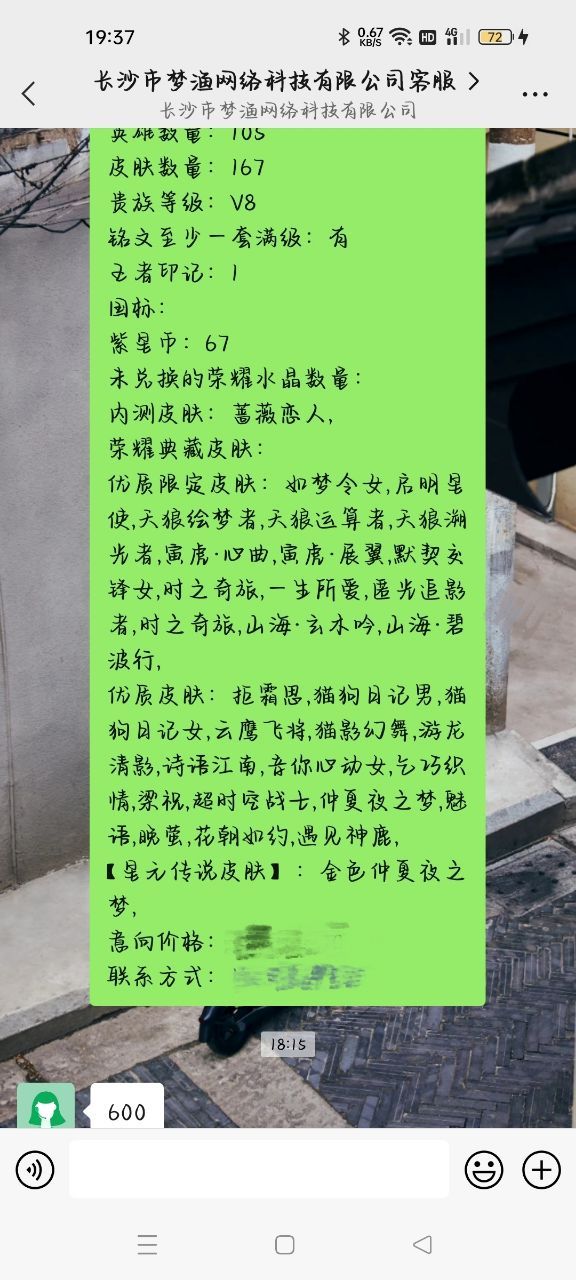 19:37
0.67 KB/S
HD
4G
72
长沙市梦渔网络科技有限公司客服
长沙市梦渔网络科技有限公司
英雄数量：105
皮肤数量：167
贵族等级：V8
铭文至少一套满级：有
王者印记：1
国标：
紫星币：67
未兑换的荣耀水晶数量：
内测皮肤：蔷薇恋人,
荣耀典藏皮肤：
优质限定皮肤：如梦令女,启明星
使,天狼绘梦者,天狼运算者,天狼溯
光者,寅虎·心曲,寅虎·展翼,默契交
锋女,时之奇旅,一生所爱,匿光追影
者,时之奇旅,山海·玄木吟,山海·碧
波行,
优质皮肤：拒霜思,猫狗日记男,猫
狗日记女,云鹰飞将,猫影幻舞,游龙
清影,诗语江南,音你心动女,乞巧织
情,梁祝,超时空战士,仲夏夜之梦,魅
语,晚萤,花朝如约,遇见神鹿,
【星元传说皮肤】：金色仲夏夜之
梦,
意向价格：
联系方式：
18:15
600